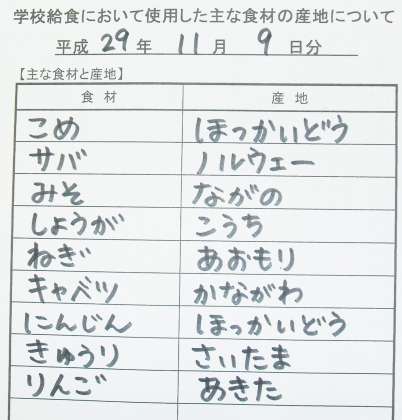 学校給食において使用した主な食材の産地について
平成 29 年 11 月 9 日分
【主な食材と産地】
食 材 産 地
こめ ほっかいどう
サバ ノルウェー
みそ ながの
しょうが こうち
ねぎ あおもり
キャベツ かながわ
にんじん ほっかいどう
きゅうり さいたま
りんご あきた